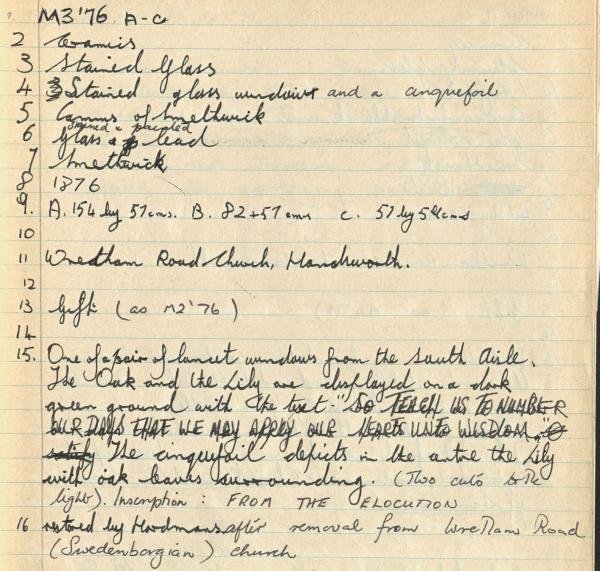 M3'76 A-C
2 Ceramics
3 Stained Glass
4 3 Stained glass windows and a cinquefoil
5 Camms of Smethwick
stained & painted
6 Glass & lead
7 Smethwick
8 1876
9. A. 154 by 57 cms. B. 82+57 cms C. 57 by 54 cms
10
11 Wretham Road Church, Handsworth.
12
13 Gift (as M2'76)
14
15. One of a pair of lancet windows from the South Aisle.
The Oak and the Lily are displayed on a dark
green ground with the text - "SO TEACH US TO NUMBER
OUR DAYS THAT WE MAY APPLY OUR HEARTS UNTO WISDOM."
The cinquefoil depicts in the centre the Lily
with oak leaves surrounding. (Two cuts to the
light). Inscription: FROM THE ELOCUTION
16 restored by Hardmans after removal from Wretham Road
(Swedenborgian) church